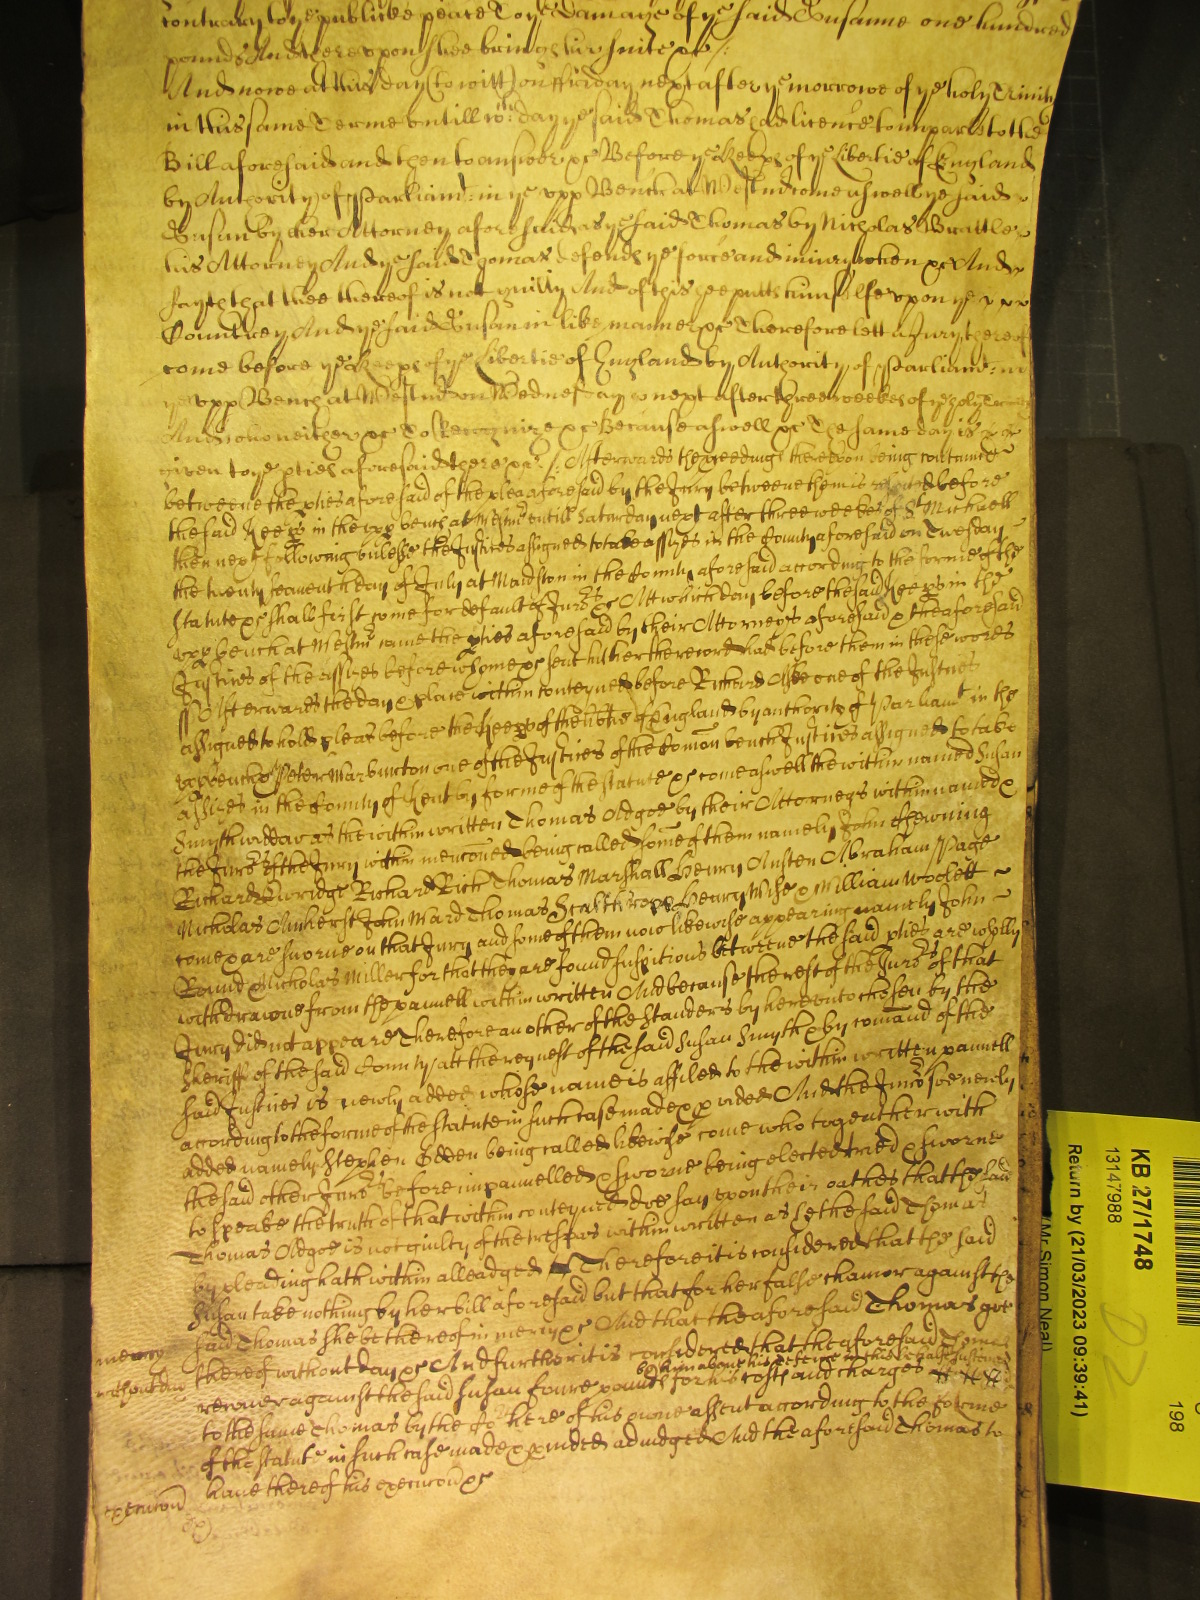 contrary to ye publike peace To ye Damage of ye said Susanne one hundred
pounds And thereupon shee brings her suite &c /:
And nowe at this day (to witt) on ffriday next after ye morrowe of ye holy Trinity
in this same Terme untill wch: day ye said Thomas had licence to imparle to the
Bill aforesaid and then to answer &c Before ye Keeps of ye Libertie of England
by Authority of Parliamt: in ye upp Bench at Westm come aswell ye said
Susan by her Attorney aforesaid as ye said Thomas by Nicholas Brattle
his Attorney And ye said Thomas defends ye force and iniury when &c And
sayth that hee thereof is not guilty And of this hee putts himselfe upon ye
Countrey And ye said Susan in like manner &c Therefore lett a Jury thereof
come before ye Keeps of ye Libertie of England by Authority of Parliamt: in
ye upp Bench at Westm on Wednesday next after three weekes of ye holy Trinity
And who neither &c To Recognize &c Because aswell &c The same day is
given to ye pties aforesaid there &c /: Afterwards the pceedings thereupon being continued
betweene the pties aforesaid of the plea aforesaid by the Jury betweene them is respited before
the said Keeps in the upp bench at Westmr untill Saturday next after three weekes of St Michaell
then next following unlesse the Justices assigned to take assizes in the County aforesaid on Tuesday
the twenty seaventh day of July at Maidston in the County aforesaid according to the forme of the
statute &c shall first come for default of Jurs &c Att which day before the said Keeps in the
upp bench at Westmr came the pties aforesaid by their Attorneys aforesaid & the aforesaid
Justices of the assizes before whome &c sent hither the record had before them in these words
ss Afterwards the day & place within conteyned before Richard Aske one of the Justices
assigned to hold pleas before the Keeps of the libtie of England by authority of Parliamt in the
upp bench & Peter Warburton one of the Justices of the Comon bench Justices assigned to take
assizes in the County of Kent by forme of the statute &c come aswell the within named Susan
Smyth widdow as the within written Thomas Oldgoe by their Attorneys within named &
the Jurs of the Jury within menconed being called some of them namely John
Richard Richard Rich Thomas Marshall Henry Austen Abraham Page
Nicholas Amherst John Ward Thomas Henry Wise & William Woolett
come & are sworne on that Jury and some of them now likewise appearing namely John
Round & Nicholas Miller for that they are found suspitious betweene the said pties are wholly
withdrawne from the pannell within written And because the rest of the Jurs of that
Jury did not appeare Therefore an other of the standers by hereunto chosen by the
Sheriff of the said County att the request of the said Susan Smyth & by comand of the
said Justices is newly added whose name is affiled to the within written pannell
according to the forme of the statute in such case made & pvided And the Juror soe newly
added namely Stephen being called likewise come who togeather with
the said other Jurs before impannelled & sworne being elected tried & sworne
to speake the truth of that within conteyned doe say upon their oathes that the said
Thomas Oldgoe is not guilty of the trespas within written as he the said Thomas
by pleading hath within alleadged Therefore it is considered that the said
Susan take nothing by her bill aforesaid but that for her false clamor against the
said Thomas she be thereof in mercy &c And that the aforesaid Thomas goe
mercy
thereof without day &c And further it is considered that the aforesaid Thomas
without day
recover against the said Susan foure pounds for his costs and charges
by him about his defence in this behalfe susteined
to the same Thomas by the Co here of his owne assent according to the forme
of the statute in such case made & pvided adiudged And the aforesaid Thomas to
have thereof his execucon &c
execucon
KB 27/1748
13147988
Return by (21/03/2023 09:39:41)
(Mr Simon Neal)
D2
198